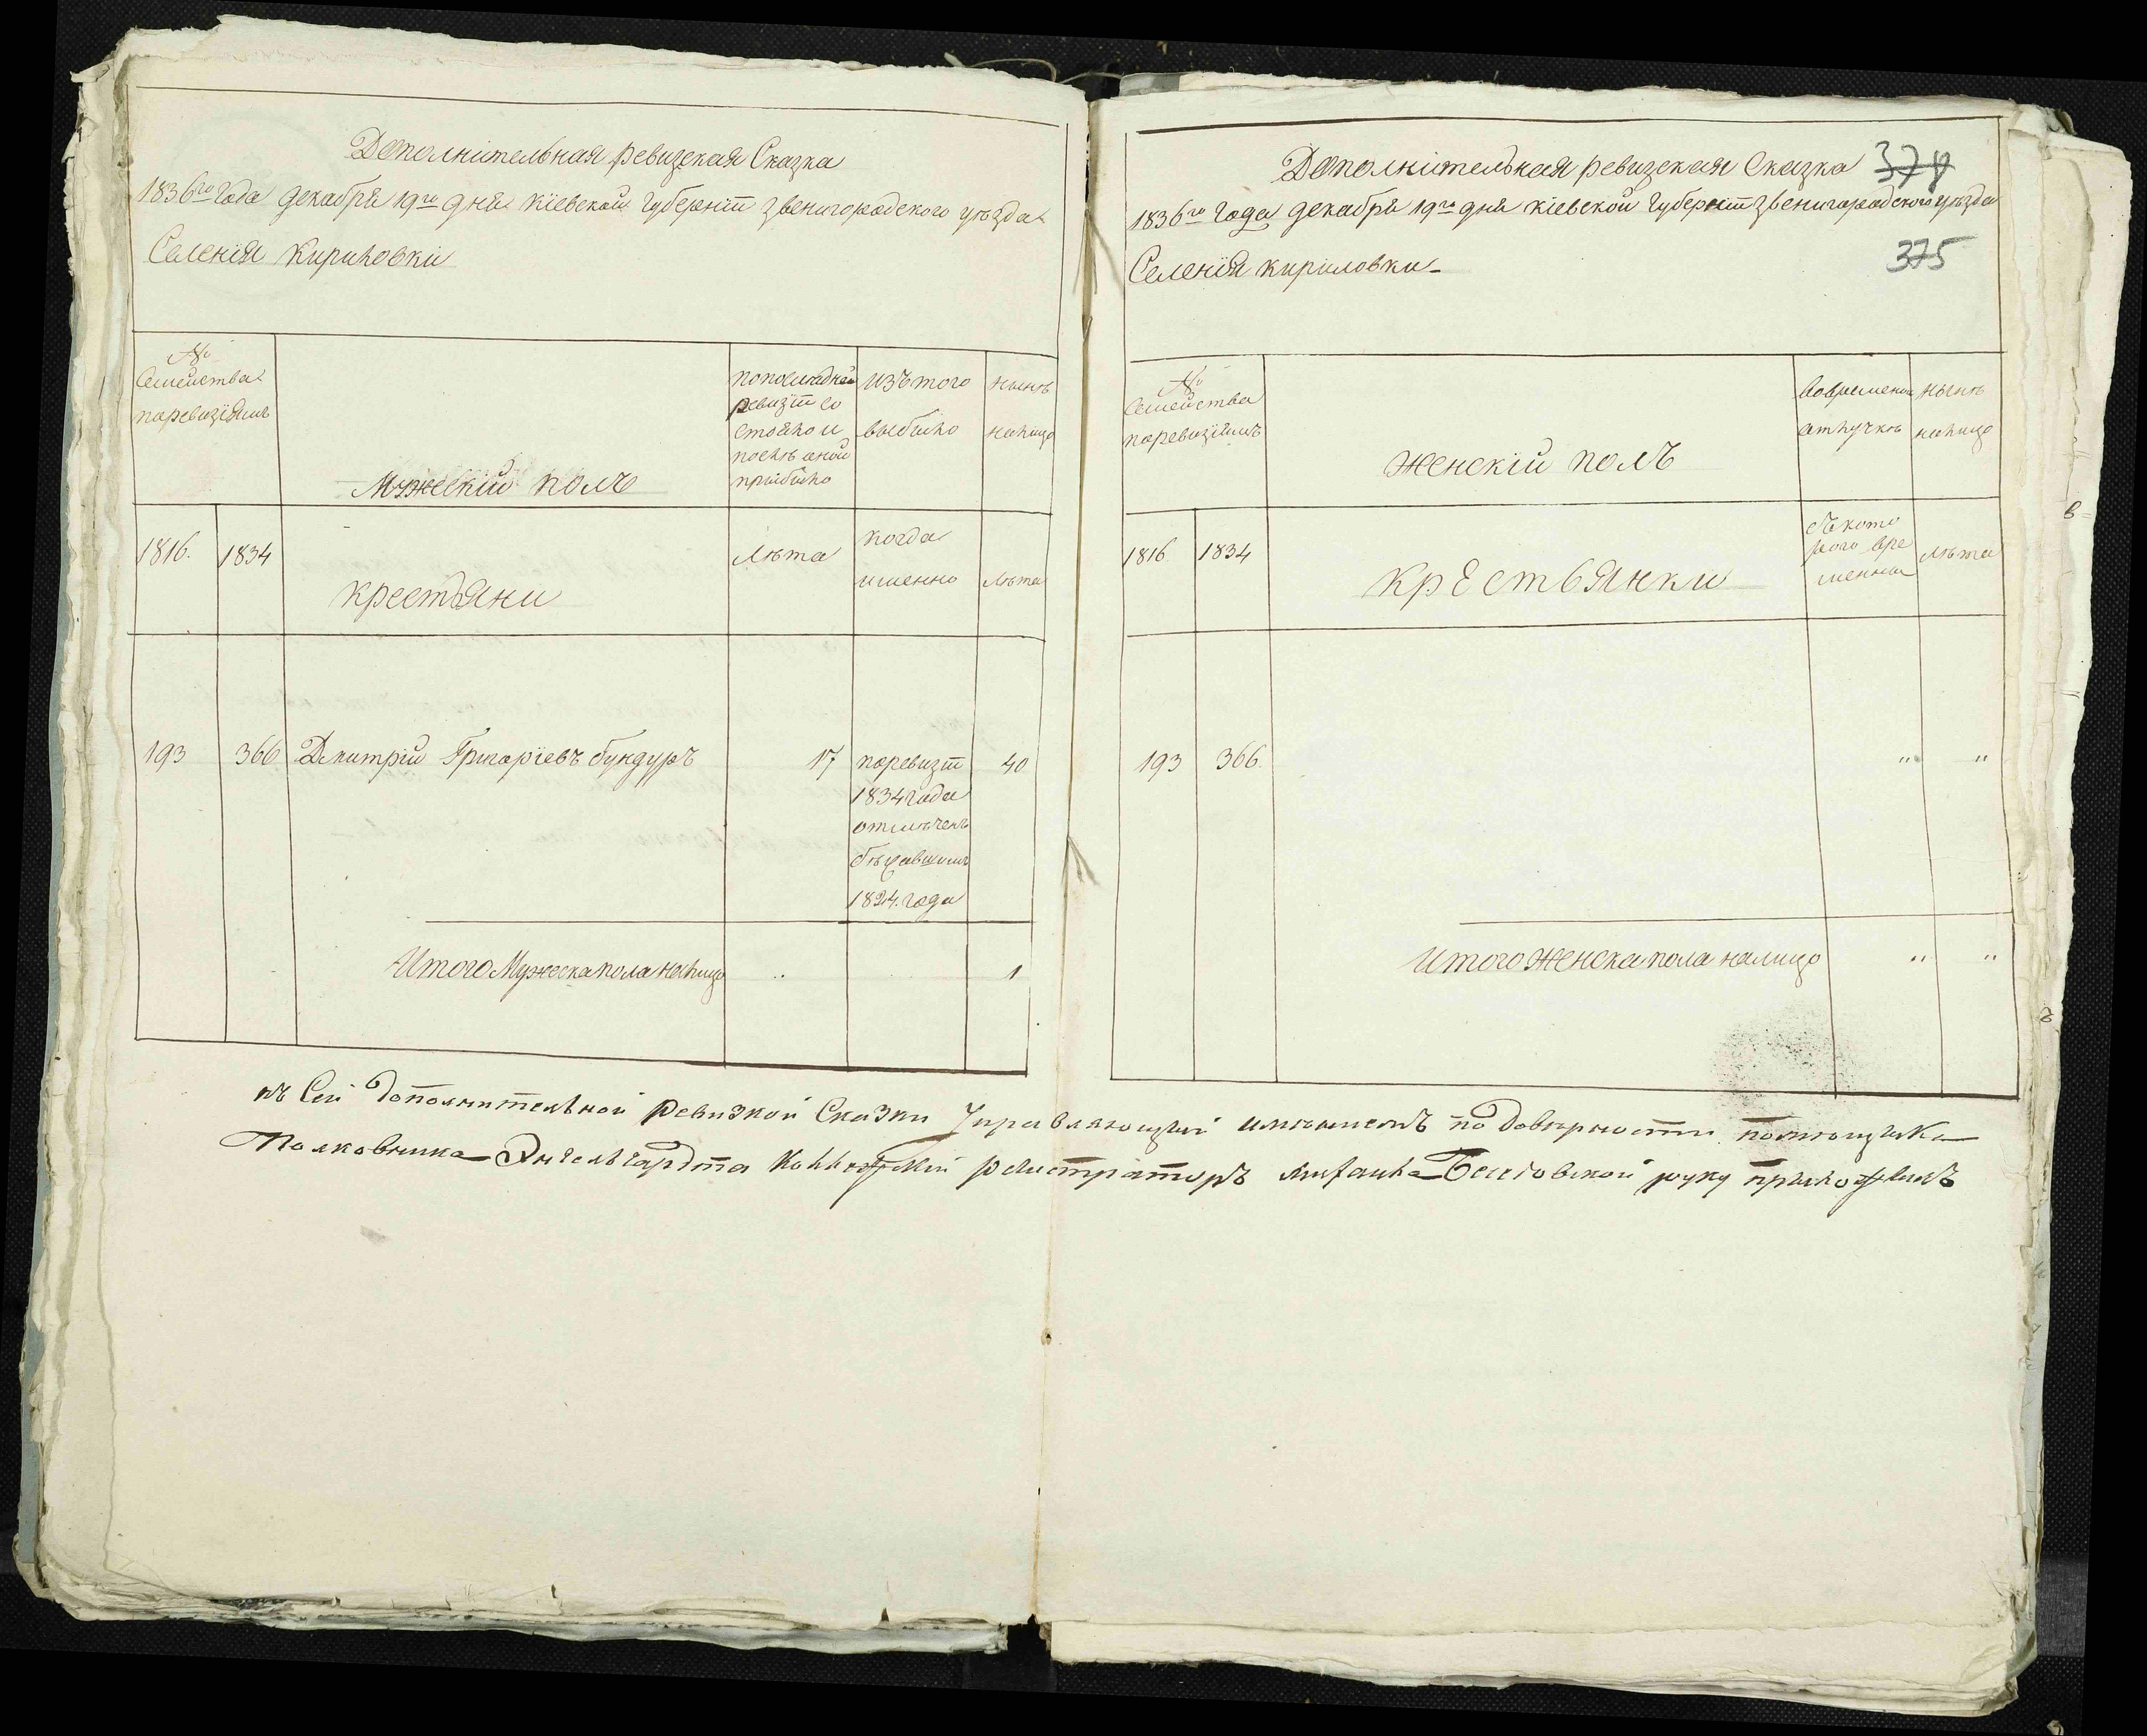 Дополнительная ревизская Сказка
1836го года декабря 19го дня Кіевской Губерніи Звенигородского уѣзда
Селенія Кириловки
№
Семейства
поревизіямъ
Мужескій полъ
попоследней
ревизіи со
стояло и
послѣ оной
прибыло
изътого
выбыло
нынѣ
налицо
1816.
1834
крестьяни
Лѣта
когда
именно
лѣта
193
366
Дмитрій Григоріевъ бундуръ
17
поревизіи
1834 года
отмѣченъ
бѣжавшимъ
1824. года
40
Итого Мужеска пола налицо
"
1
Дополнительная ревизская Сказка
374
1836го года декабря 19го дня Кіевской Губерніи Звенигородского уѣзда
Селенія Кириловки
375
№
Семейства
поревизіямъ
женскій полъ
вовременной
отлучкѣ
нынѣ
налицо
1816
1834
крестьянки
съ кото
рого вре
менна
лѣта
193
366.
"
"
Итого Женска пола налицо
"
"
къ Сей дополнительной ревизкой Сказки Управляющій имѣниемъ по довѣрности помѣщика
Полковника Энгельгардта Коллежскій регистраторъ руку приложилъ